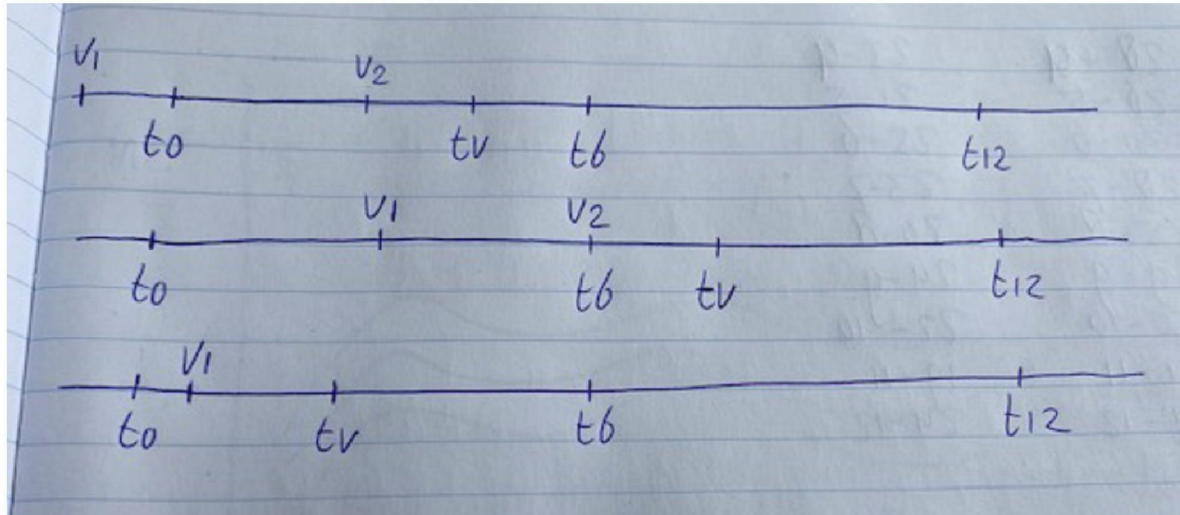 V1 V2
to tv t6 t12
V1 V2
to t6 tv t12
V1
to tv t6 t12